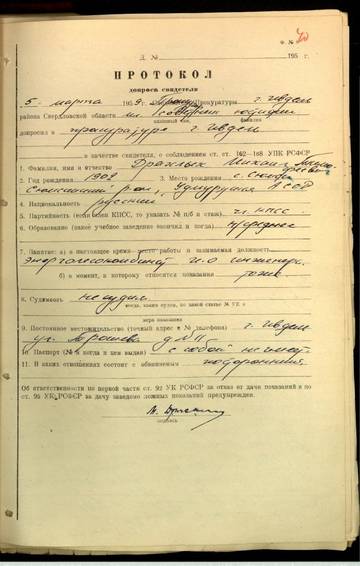 Ф. №
70
Д. № 195 г.
ПРОТОКОЛ
допроса свидетеля
5. марта 1959. Прокуратуры г. Ивдель
района Свердловской области мл. советник юстиции
допросил в прокуратуре г. Ивдель
в качестве свидетеля, с соблюдением ст. ст. 162—168 УПК РСФСР
1. Фамилия, имя и отчество Михаил
2. Год рождения 1909 3. Место рождения с.
район, Удмуртская АССР
4. Национальность русский
5. Партийность (если член КПСС, то указать № п/б и стаж) чл. КПСС.
6. Образование (какое учебное заведение окончил и когда) среднее
7. Занятие: а) в настоящее время место работы и занимаемая должность
и.о. инженера.
б) в момент, к которому относятся показания тоже
8. Судимость не судим.
когда, каким судом, по какой статье УК и
мера наказания
9. Постоянное местожительство (точный адрес и № телефона) г. Ивдель
ул. д №11
10. Паспорт (№ и когда и кем выдан) с собой не имеет
11. В каких отношениях состоит с обвиняемым посторонний
Об ответственности по первой части ст. 92 УК РСФСР за отказ от дачи показаний и по
ст. 95 УК РСФСР за дачу заведомо ложных показаний предупрежден.
подпись